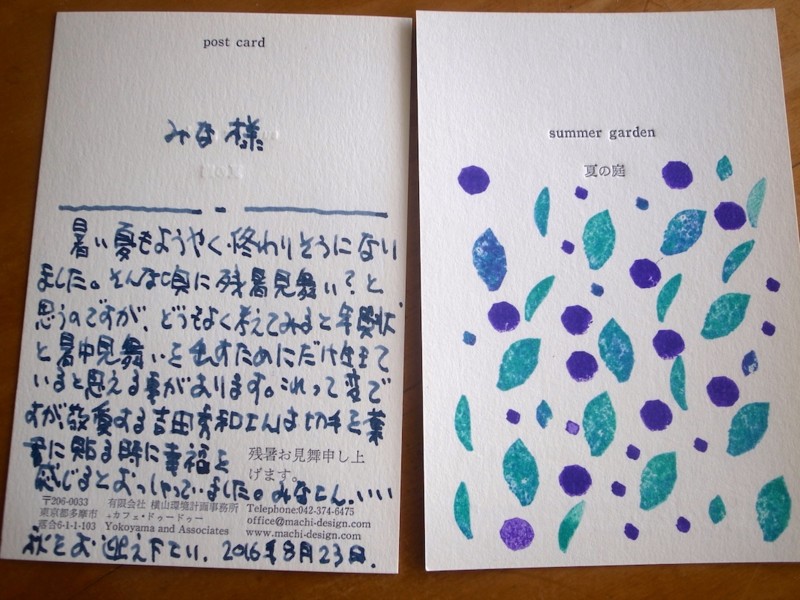 post card
みな様
暑い夏もようやく終わりそうになり
ました。そんな頃に残暑見舞い？と
思うのですが、どうもよく考えてみると年賀状
と暑中見舞いを出すためにだけ生きて
いると思える事があります。これって変で
すが敬愛する吉田秀和さんは切手を葉
書に貼る時に幸福を
感じるとおっしゃっていました。みなさん、いい
秋をお迎え下さい。2016年8月23日.
残暑お見舞申し上
げます。
〒206-0033
東京都多摩市
落合6-1-1-103
有限会社 横山環境計画事務所
+カフェ・ドゥードゥー
Yokoyama and Associates
Telephone:042-374-6475
office@machi-design.com
www.machi-design.com
summer garden
夏の庭